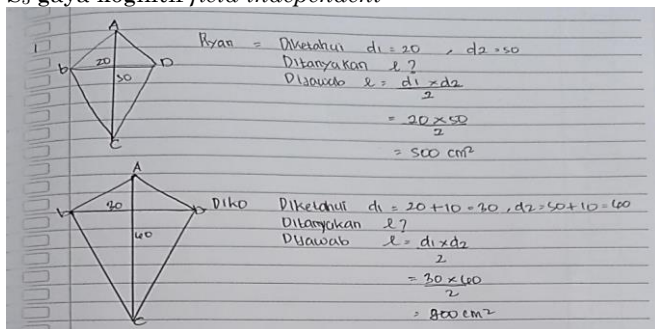 S3 gaya kognitif field independent
1
A
B
20
D
50
C
Ryan = Diketahui d1 = 20 , d2 = 50
Ditanyakan l ?
Dijawab l = d1 x d2
2
= 20 x 50
2
= 500 cm²
A
b
30
D
60
C
DIKO Diketahui d1 = 20 + 10 = 30 , d2 = 50 + 10 = 60
Ditanyakan l ?
Dijawab l = d1 x d2
2
= 30 x 60
2
= 900 cm²